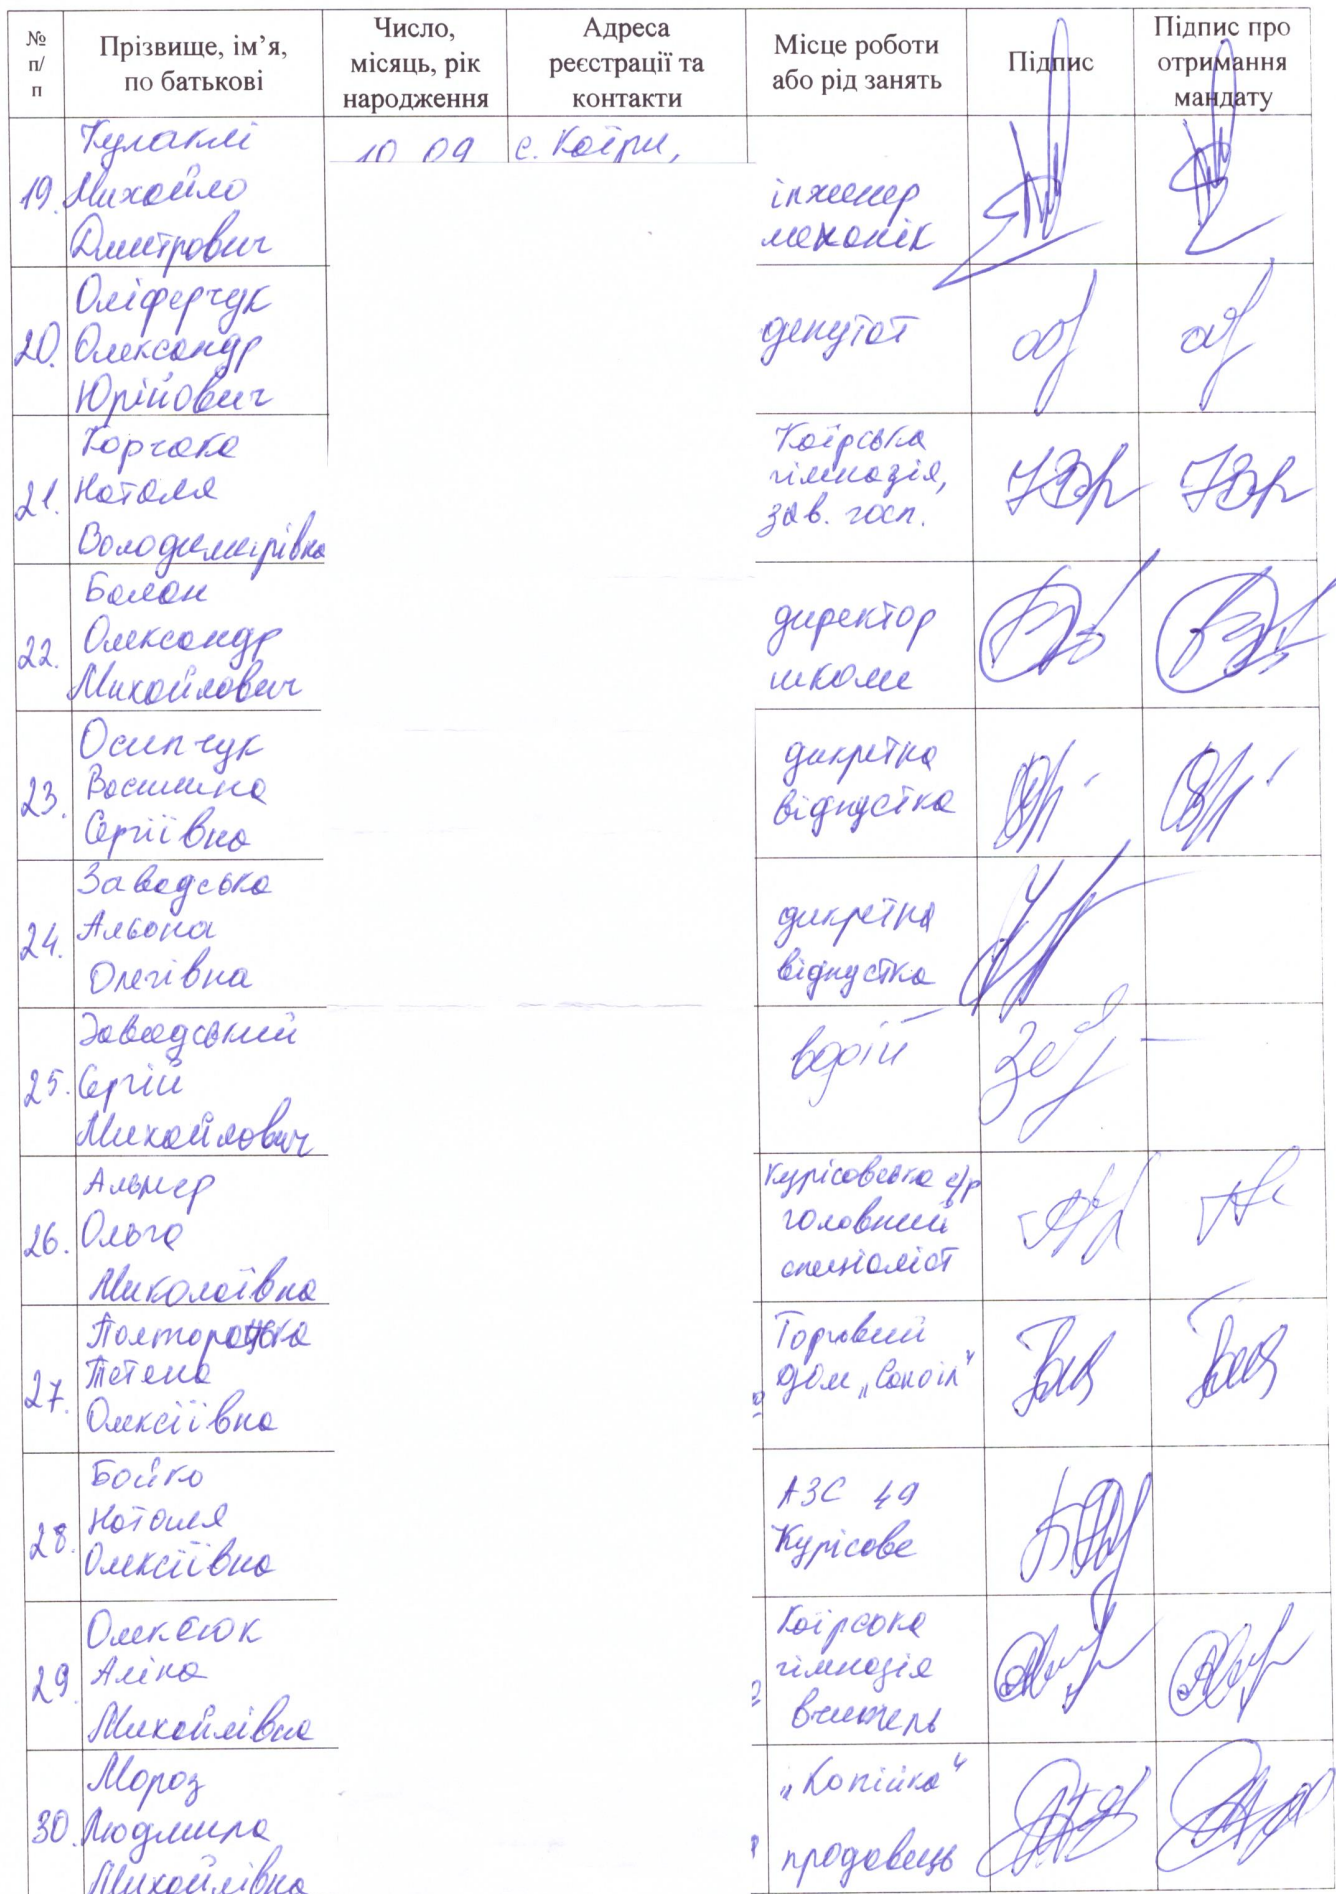 № п/п
Прізвище, ім’я, по батькові
Число, місяць, рік народження
Адреса реєстрації та контакти
Місце роботи або рід занять
Підпис
Підпис про отримання мандату
19.
Кулаклі
Михайло
Дмитрович
10 09
с. Коїри,
інженер
механік
20.
Оліферчук
Олександр
Юрійович
депутат
21.
Корчака
Наталя
Володимирівна
Коїрська
гімназія,
зав. госп.
22.
Балан
Олександр
Михайлович
директор
школи
23.
Осипчук
Василина
Сергіївна
дикретна
відпустка
24.
Завадська
Альона
Олегівна
дикретна
відпустка
25.
Завадський
Сергій
Михайлович
водій
26.
Альмер
Ольга
Миколаївна
Курісовська с/р
головний
спеціаліст
27.
Полторацька
Тетяна
Олексіївна
Торговий
дом „Сокоіл“
28.
Бойко
Наталя
Олексіївна
АЗС 49
Курісове
29.
Олексюк
Аліна
Михайлівна
Коїрська
гімназія
вчитель
30.
Мороз
Людмила
Михайлівна
„Копійка“
продавець